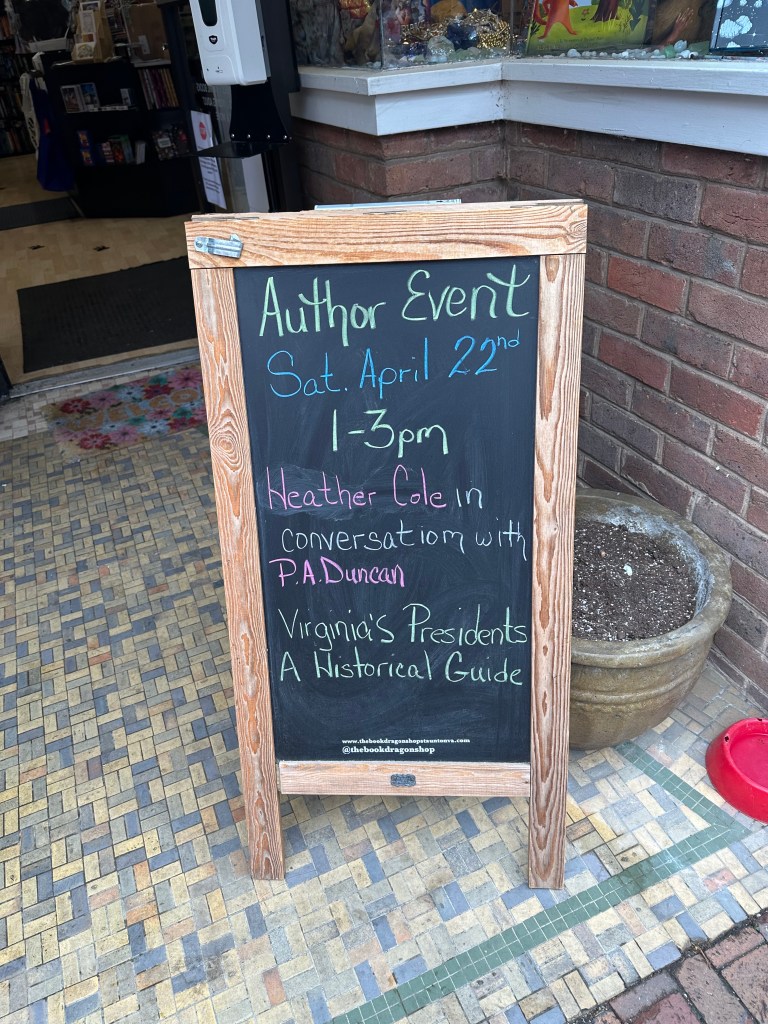 Author Event
Sat. April 22nd
1-3pm
Heather Cole in
conversation with
P.A.Duncan
Virginia's Presidents
A Historical Guide
www.thebookdragonshopstauntonva.com
@thebookdragonshop